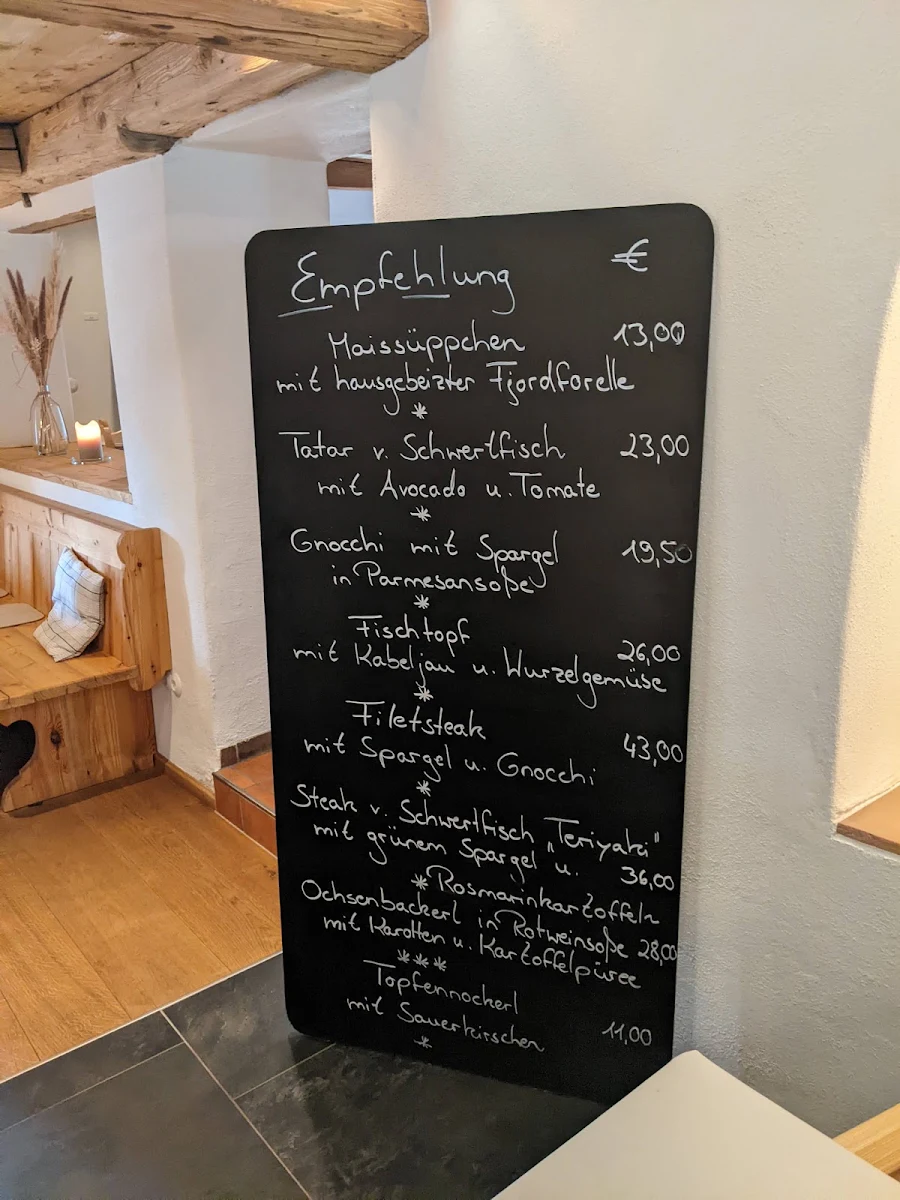 Empfehlung €
Maissüppchen 13,00
mit hausgebeizter Fjordforelle
*
Tatar v. Schwertfisch 23,00
mit Avocado u. Tomate
*
Gnocchi mit Spargel 19,50
in Parmesansoße
*
Fischtopf 26,00
mit Kabeljau u. Wurzelgemüse
*
Filetsteak 43,00
mit Spargel u. Gnocchi
*
Steak v. Schwertfisch „Teriyaki"
mit grünem Spargel u. 36,00
* Rosmarinkartoffeln
Ochsenbackerl in Rotweinsoße 28,00
mit Karotten u. Kartoffelpüree
***
Topfennockerl
mit Sauerkirschen 11,00
*